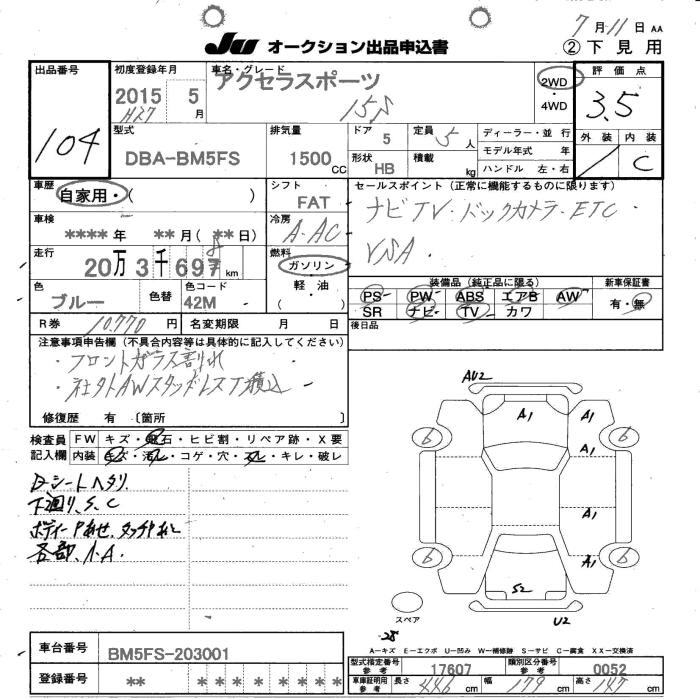 7月11日 AA
JU オークション出品申込書
②下見用
出品番号
104
初度登録年月
2015 5月
H27
車名・グレード
アクセラスポーツ
15S
2WD
・
4WD
評価点
3.5
外装 内装
C
型式
DBA-BM5FS
排気量
1500 CC
ドア
5
定員
5人
形状
HB
積載
kg
ディーラー・並行
モデル年式 年
ハンドル 左・右
車歴
自家用・( )
シフト
FAT
セールスポイント (正常に機能するものに限ります)
ナビTV・バックカメラ・ETC
車検
****年 **月(**日)
冷房
A-AC
走行
20万3千697km
8
燃料
ガソリン
・
軽・油
( )
色
ブルー
色替
色コード
42M
装備品 (純正品に限る)
PS PW ABS エアB AW
SR ナビ TV カワ
新車保証書
有・無
R券 10,770円
名変期限 月 日
後日品
注意事項申告欄 (不具合内容等は具体的に記入してください)
・フロントガラス割れ
・社外AWスタッドレスT積込
修復歴 有 〔箇所 〕
検査員
記入欄
FW キズ・飛石・ヒビ割・リペア跡・X要
内装 キズ・汚レ・コゲ・穴・スレ・キレ・破レ
Dシートヘタリ
下廻り、S、C
各部、A・A・
AU2
A1
A1
A1
A1
6
6
6
6
S2
U2
スペア
A-キズ E-エクボ U-凹み W-補修跡 S-サビ C-腐食 XX-交換済
車台番号
BM5FS-203001
登録番号
** * * * * * * *
型式指定番号
参考
17607
類別区分番号
参考
0052
車庫証明用
参考
長さ 446cm
幅 179cm
高さ 147cm